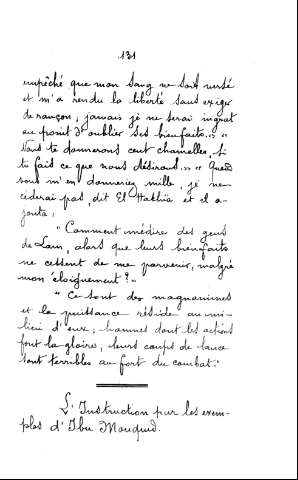 131
empêché que mon sang ne soit versé
et m'a rendu la liberté sans exiger
de rançon ; jamais je ne serai ingrat
au point d'oublier ses bienfaits. » «
Nous te donnerons cent chamelles, si
tu fais ce que nous désirons. » « Quand
vous m'en donneriez mille, je ne
céderai pas, dit El Hathia et il a-
jouta :
" Comment médire des gens
de Lam, alors que leurs bienfaits
ne cessent de me parvenir, malgré
mon éloignement ? "
" Ce sont des magnanimes
et la puissance réside au mi-
lieu d'eux ; hommes dont les actions
font la gloire, leurs coups de lance
sont terribles au fort du combat. "
L'Instruction par les exem-
ples d'Ibn Mouqud.